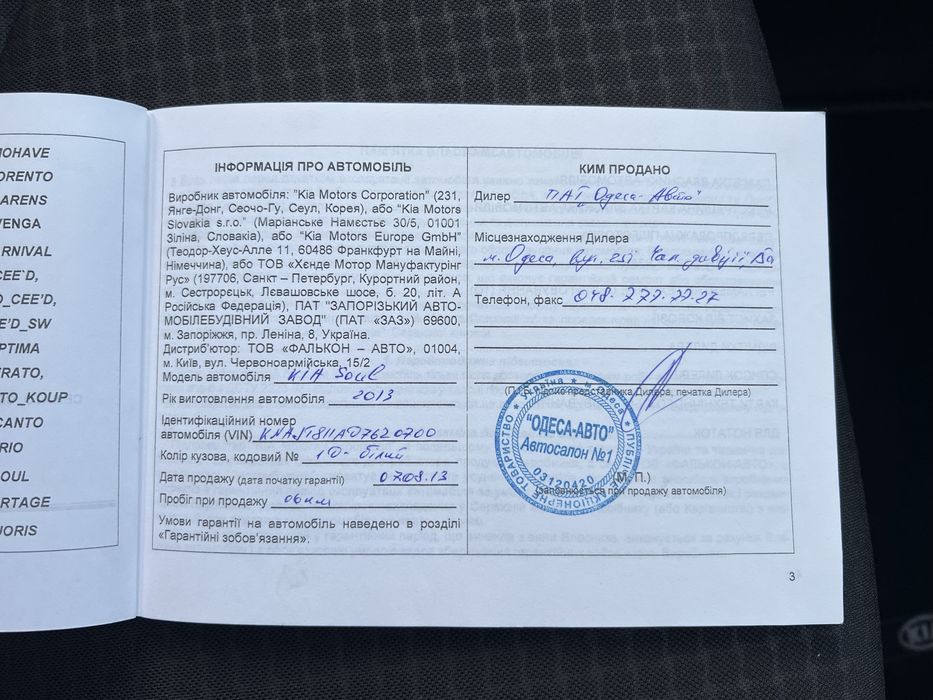 MOHAVE
ORENTO
ARENS
VENGA
RNIVAL
CEE`D,
O_CEE'D,
E'D_SW
PTIMA
ERATO,
TO_KOUP
CANTO
RIO
OUL
RTAGE
UORIS
ІНФОРМАЦІЯ ПРО АВТОМОБІЛЬ
Виробник автомобіля: "Kia Motors Corporation" (231,
Янге-Донг, Сеочо-Гу, Сеул, Корея), або "Kia Motors
Slovakia s.r.o." (Маріанське Намєстьє 30/5, 01001
Зіліна, Словакія), або "Kia Motors Europe GmbH"
(Теодор-Хеус-Алле 11, 60486 Франкфурт на Майні,
Німеччина), або ТОВ «Хєнде Мотор Мануфактурінг
Рус» (197706, Санкт – Петербург, Курортний район,
м. Сестрорєцьк, Лєвашовське шосе, б. 20, літ. А
Російська Федерація), ПАТ "ЗАПОРІЗЬКИЙ АВТО-
МОБІЛЕБУДІВНИЙ ЗАВОД" (ПАТ «ЗАЗ») 69600,
м. Запоріжжя, пр. Леніна, 8, Україна.
Дистриб'ютор: ТОВ «ФАЛЬКОН – АВТО», 01004,
м. Київ, вул. Червоноармійська, 15/2
Модель автомобіля KIA Soul
Рік виготовлення автомобіля 2013
Ідентифікаційний номер
автомобіля (VIN) KNAJT811AD7620700
Колір кузова, кодовий № 1D- білий
Дата продажу (дата початку гарантії) 07.08.13
Пробіг при продажу 06 км
Умови гарантії на автомобіль наведено в розділі
«Гарантійні зобов'язання».
КИМ ПРОДАНО
Дилер ПАТ „Одеса-Авто"
Місцезнаходження Дилера
м. Одеса, вул. 25ї Чап. дивізії
Телефон, факс 048-777-77-27
підпис представника Дилера, печатка Дилера)
Україна * м. Одеса
ПУБЛІЧНЕ АКЦІОНЕРНЕ ТОВАРИСТВО
"ОДЕСА-АВТО"
Автосалон №1
03120420
(М. П.)
(заповнюється при продажу автомобіля)
3